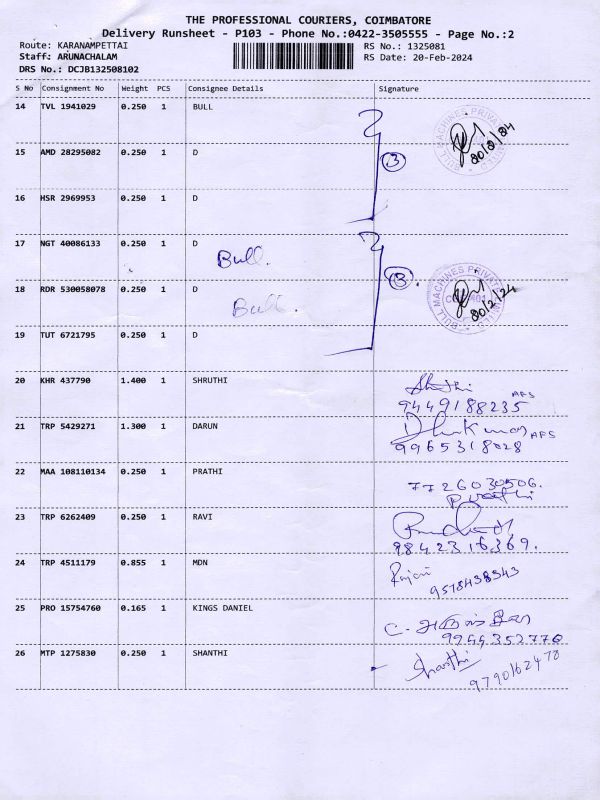 THE PROFESSIONAL COURIERS, COIMBATORE
Delivery Runsheet - P103 - Phone No.:0422-3505555 - Page No.:2
Route: KARANAMPETTAI RS No.: 1325081
Staff: ARUNACHALAM RS Date: 20-Feb-2024
DRS No.: DCJB132508102
S No Consignment No Weight PCS Consignee Details Signature
14 TVL 1941029 0.250 1 BULL
BULL MACHINES PRIVATE LIMITED
20/2/24
15 AMD 28295082 0.250 1 D
3
16 HSR 2969953 0.250 1 D
17 NGT 40086133 0.250 1 D
Bull.
18 RDR 530058078 0.250 1 D
Bull.
3
BULL MACHINES PRIVATE LIMITED
20/2/24
19 TUT 6721795 0.250 1 D
20 KHR 437790 1.400 1 SHRUTHI
Shruthi AFS
9449188235
21 TRP 5429271 1.300 1 DARUN
AFS
9965318028
22 MAA 108110134 0.250 1 PRATHI
7726030506.
Prathi
23 TRP 6262409 0.250 1 RAVI
9842316369.
24 TRP 4511179 0.855 1 MDN
9518438343
25 PRO 15754760 0.165 1 KINGS DANIEL
9244352770
26 MTP 1275830 0.250 1 SHANTHI
Shanthi
9790162478